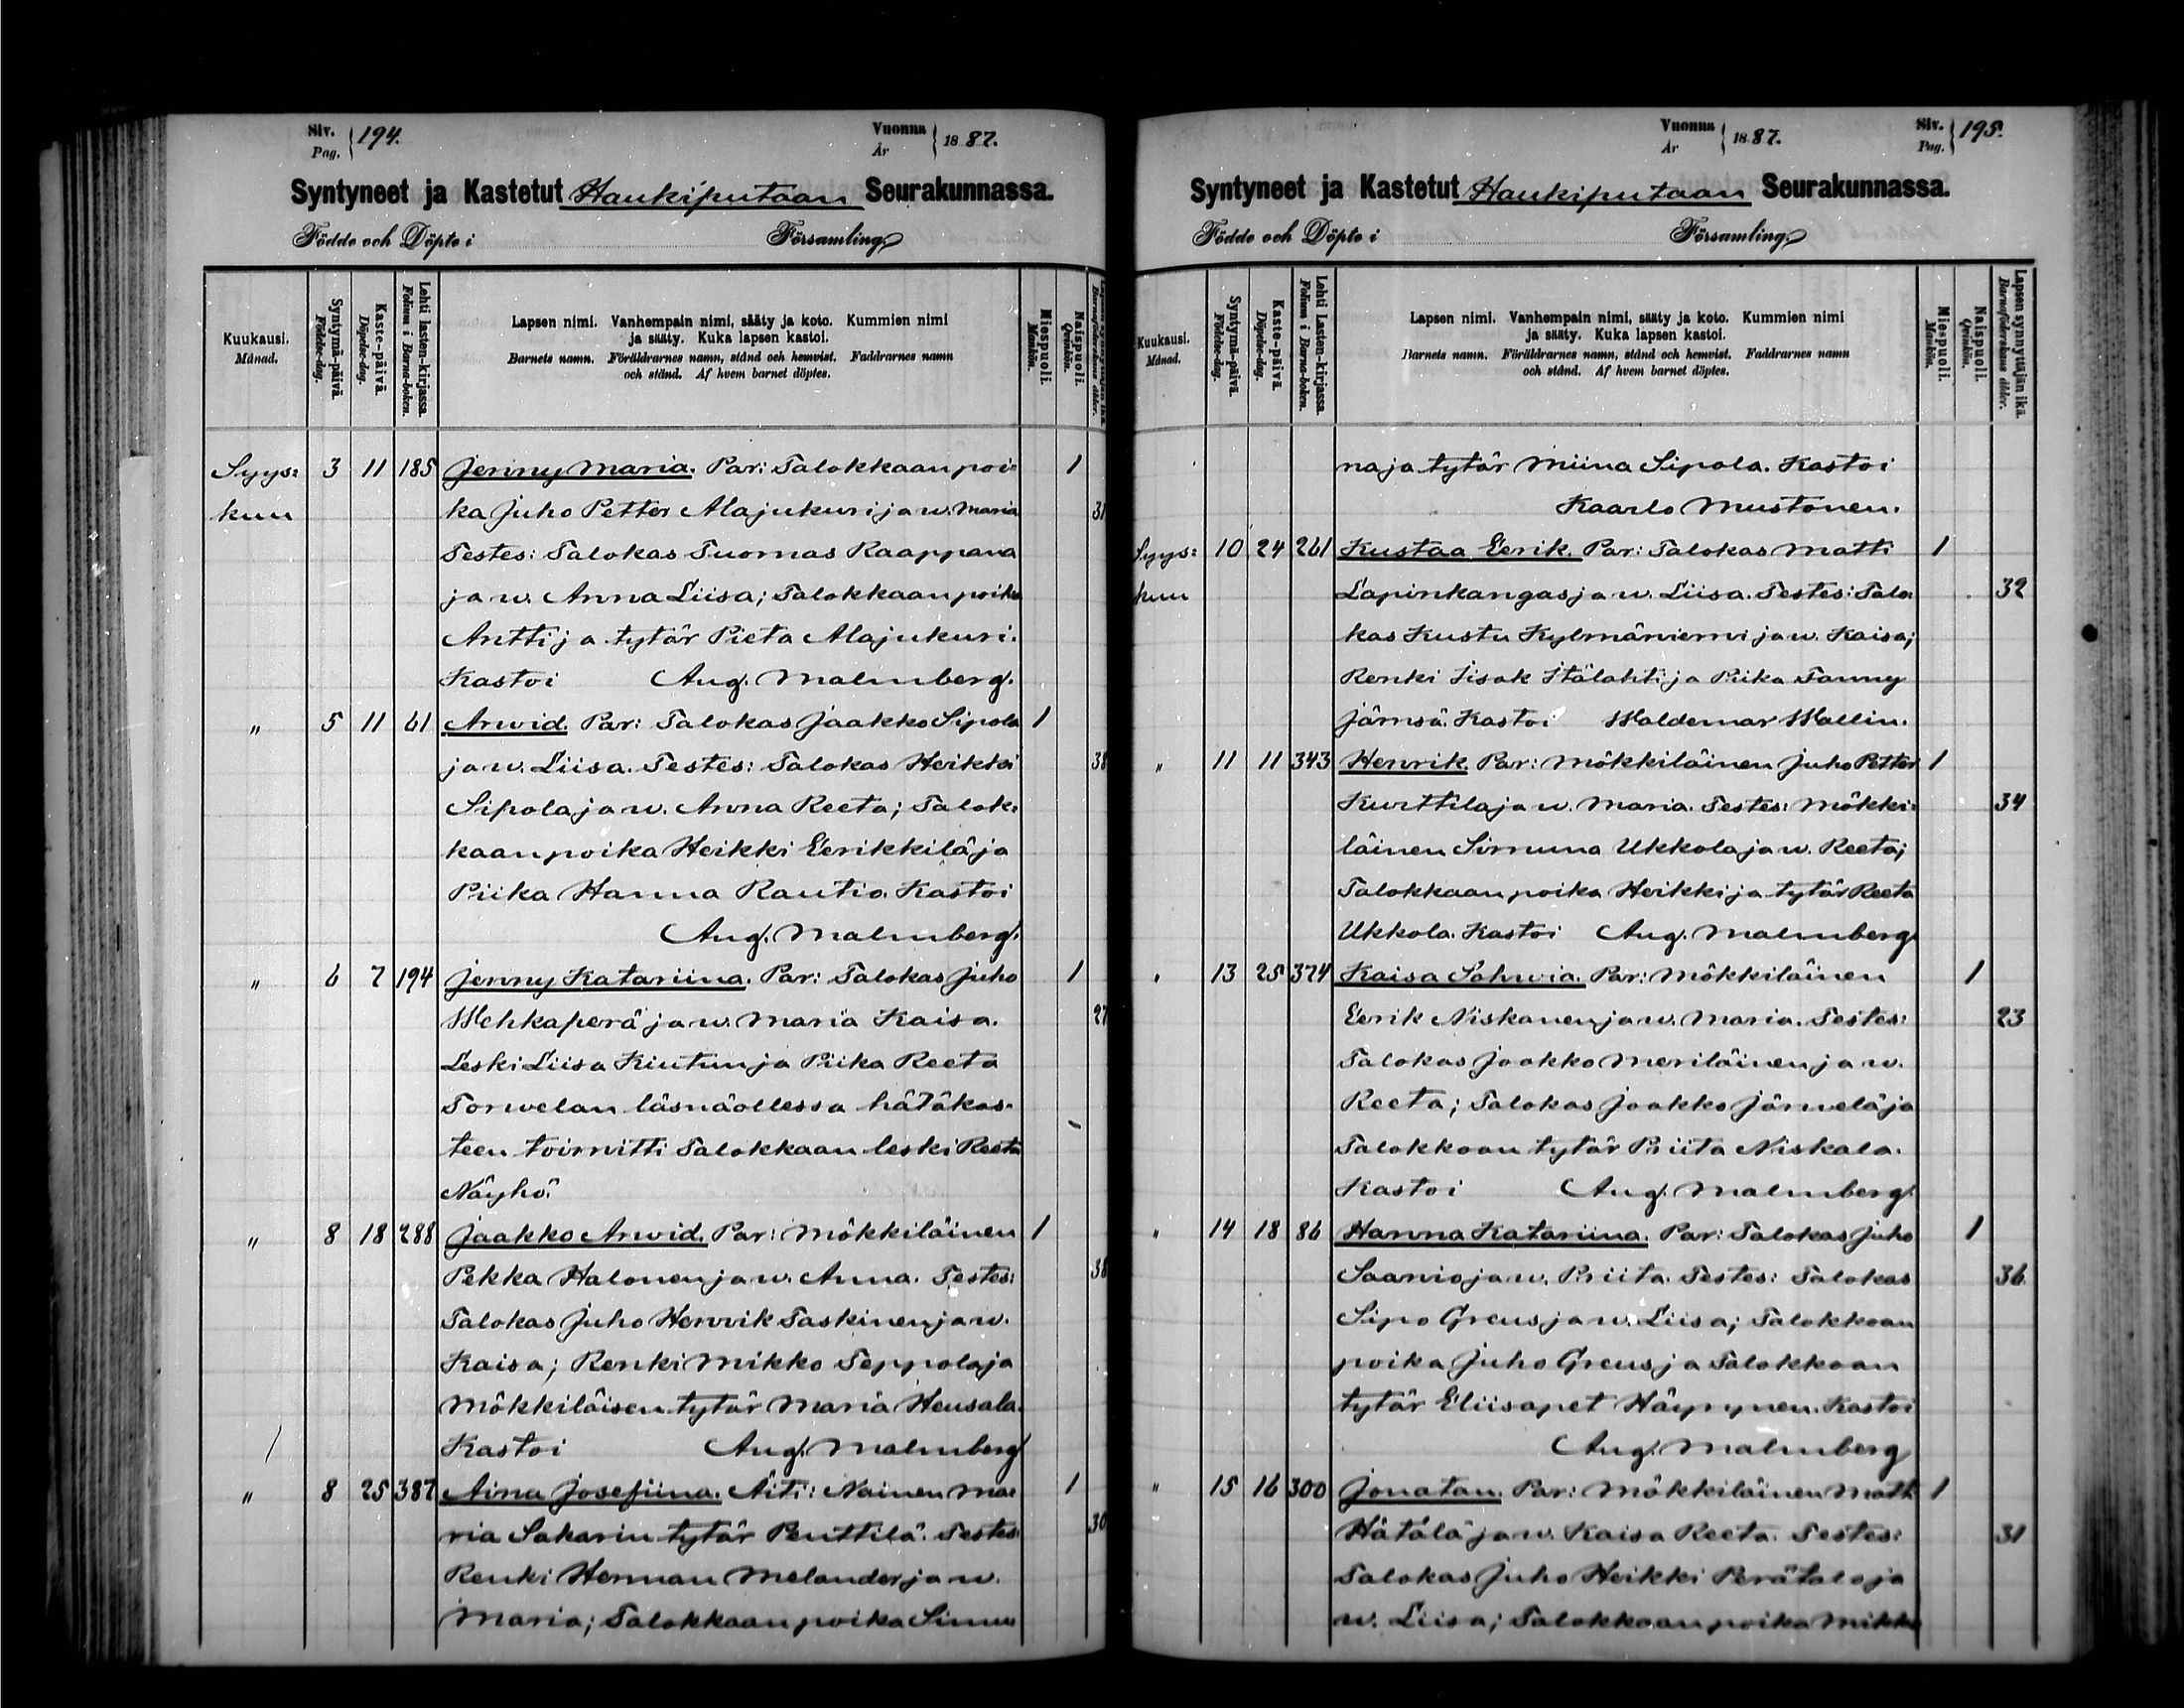 Siv.
Pag. } 194.
Vuonna
År } 1887.
Syntyneet ja Kastetut Haukiputaan Seurakunnassa.
Födde och Döpte i Församling
Kuukausi.
Månad.
Syntymä-päivä.
Födelse-dag.
Kaste-päivä.
Döpelse-dag.
Lehti lasten-kirjassa.
Folium i Barna-boken.
Lapsen nimi. Vanhempain nimi, sääty ja koto. Kummien nimi
ja sääty. Kuka lapsen kastoi.
Barnets namn. Föräldrarnes namn, stånd och hemvist. Faddrarnes namn
och stånd. Af hvem barnet döptes.
Miespuoli.
Mankön.
Naispuoli.
Qvinkön.
Syys= 3 11 185 Jenny Maria. Par: Talokkaan poi= 1
kuu ka Juho Petter Alajukuri ja w. Maria 31
Testes: Talokas Tuomas Raappana
ja w. Anna Liisa; Talokkaan poika
Antti ja tytär Pieta Alajukuri.
Kastoi Aug. Malmberg.
" 5 11 61 Arwid. Par: Talokas Jaakko Sipola 1
ja w. Liisa. Testes: Talokas Heikki 38
Sipola ja w. Anna Reeta; Talok=
kaan poika Heikki Eerikkilä ja
Piika Hanna Rautio. Kastoi
Aug. Malmberg.
" 6 7 194 Jenny Katariina. Par: Talokas Juho 1
Wehkaperä ja w. Maria Kaisa. 27
Leski Liisa Kiutun ja Piika Reeta
Torwelan läsnäollessa hätäkas-
teen toimitti Talokkaan leski Reeta
Näyhö.
" 8 18 288 Jaakko Arwid. Par: Mökkiläinen 1
Pekka Halonen ja w. Anna. Testes: 38
Talokas Juho Henrik Taskinen ja w.
Kaisa; Renki Mikko Seppola ja
Mökkiläisen tytär Maria Heusala.
Kastoi Aug. Malmberg
" 8 25 387 Aina Josefiina. Äiti: Nainen Ma= 1
ria Sakarin tytär Penttilä. Testes: 30
Renki Herman Melander ja w.
Maria; Talokkaan poika Simu
Vuonna
År } 1887.
Siv.
Pag. } 195.
Syntyneet ja Kastetut Haukiputaan Seurakunnassa.
Födde och Döpte i Församling
Kuukausi.
Månad.
Syntymä-päivä.
Födelse-dag.
Kaste-päivä.
Döpelse-dag.
Lehti Lasten-kirjassa.
Folium i Barna-boken.
Lapsen nimi. Vanhempain nimi, sääty ja koto. Kummien nimi
ja sääty. Kuka lapsen kastoi.
Barnets namn. Föräldrarnes namn, stånd och hemvist. Faddrarnes namn
och stånd. Af hvem barnet döptes.
Miespuoli.
Mankön.
Naispuoli.
Qvinkön.
Lapsen synnyttäjän ikä.
Barnaföderskans ålder.
na ja tytär Miina Sipola. Kastoi
Kaarlo Mustonen.
Syys= 10 24 261 Kustaa Eerik. Par: Talokas Matti 1
kuu Lapinkangas ja w. Liisa. Testes: Talo= 32
kas Kustu Kylmäniemi ja w. Kaisa;
Renki Iisak Itälahti ja Piika Fanny
Jämsä. Kastoi Waldemar Wallin.
" 11 11 343 Henrik. Par: Mökkiläinen Juho Petter 1
Kurttila ja w. Maria. Testes: Mökki= 34
läinen Simuna Ukkola ja w. Reeta;
Talokkaan poika Heikki ja tytär Reeta
Ukkola. Kastoi Aug. Malmberg
" 13 25 374 Kaisa Sohwia. Par: Mökkiläinen 1
Eerik Niskanen ja w. Maria. Testes: 23
Talokas Jaakko Meriläinen ja w.
Reeta; Talokas Jaakko Järwelä ja
Talokkaan tytär Priita Niskala.
Kastoi Aug. Malmberg.
" 14 18 86 Hanna Katariina. Par: Talokas Juho 1
Saanio ja w. Priita. Testes: Talokas 36
Sipo Greus ja w. Liisa; Talokkaan
poika Juho Greus ja Talokkaan
tytär Eliisapet Häyrynen. Kastoi
Aug. Malmberg
" 15 16 300 Jonatan. Par: Mökkiläinen Matti 1
Hätälä ja w. Kaisa Reeta. Testes: 31
Talokas Juho Heikki Perätalo ja
w. Liisa; Talokkaan poika Mikko